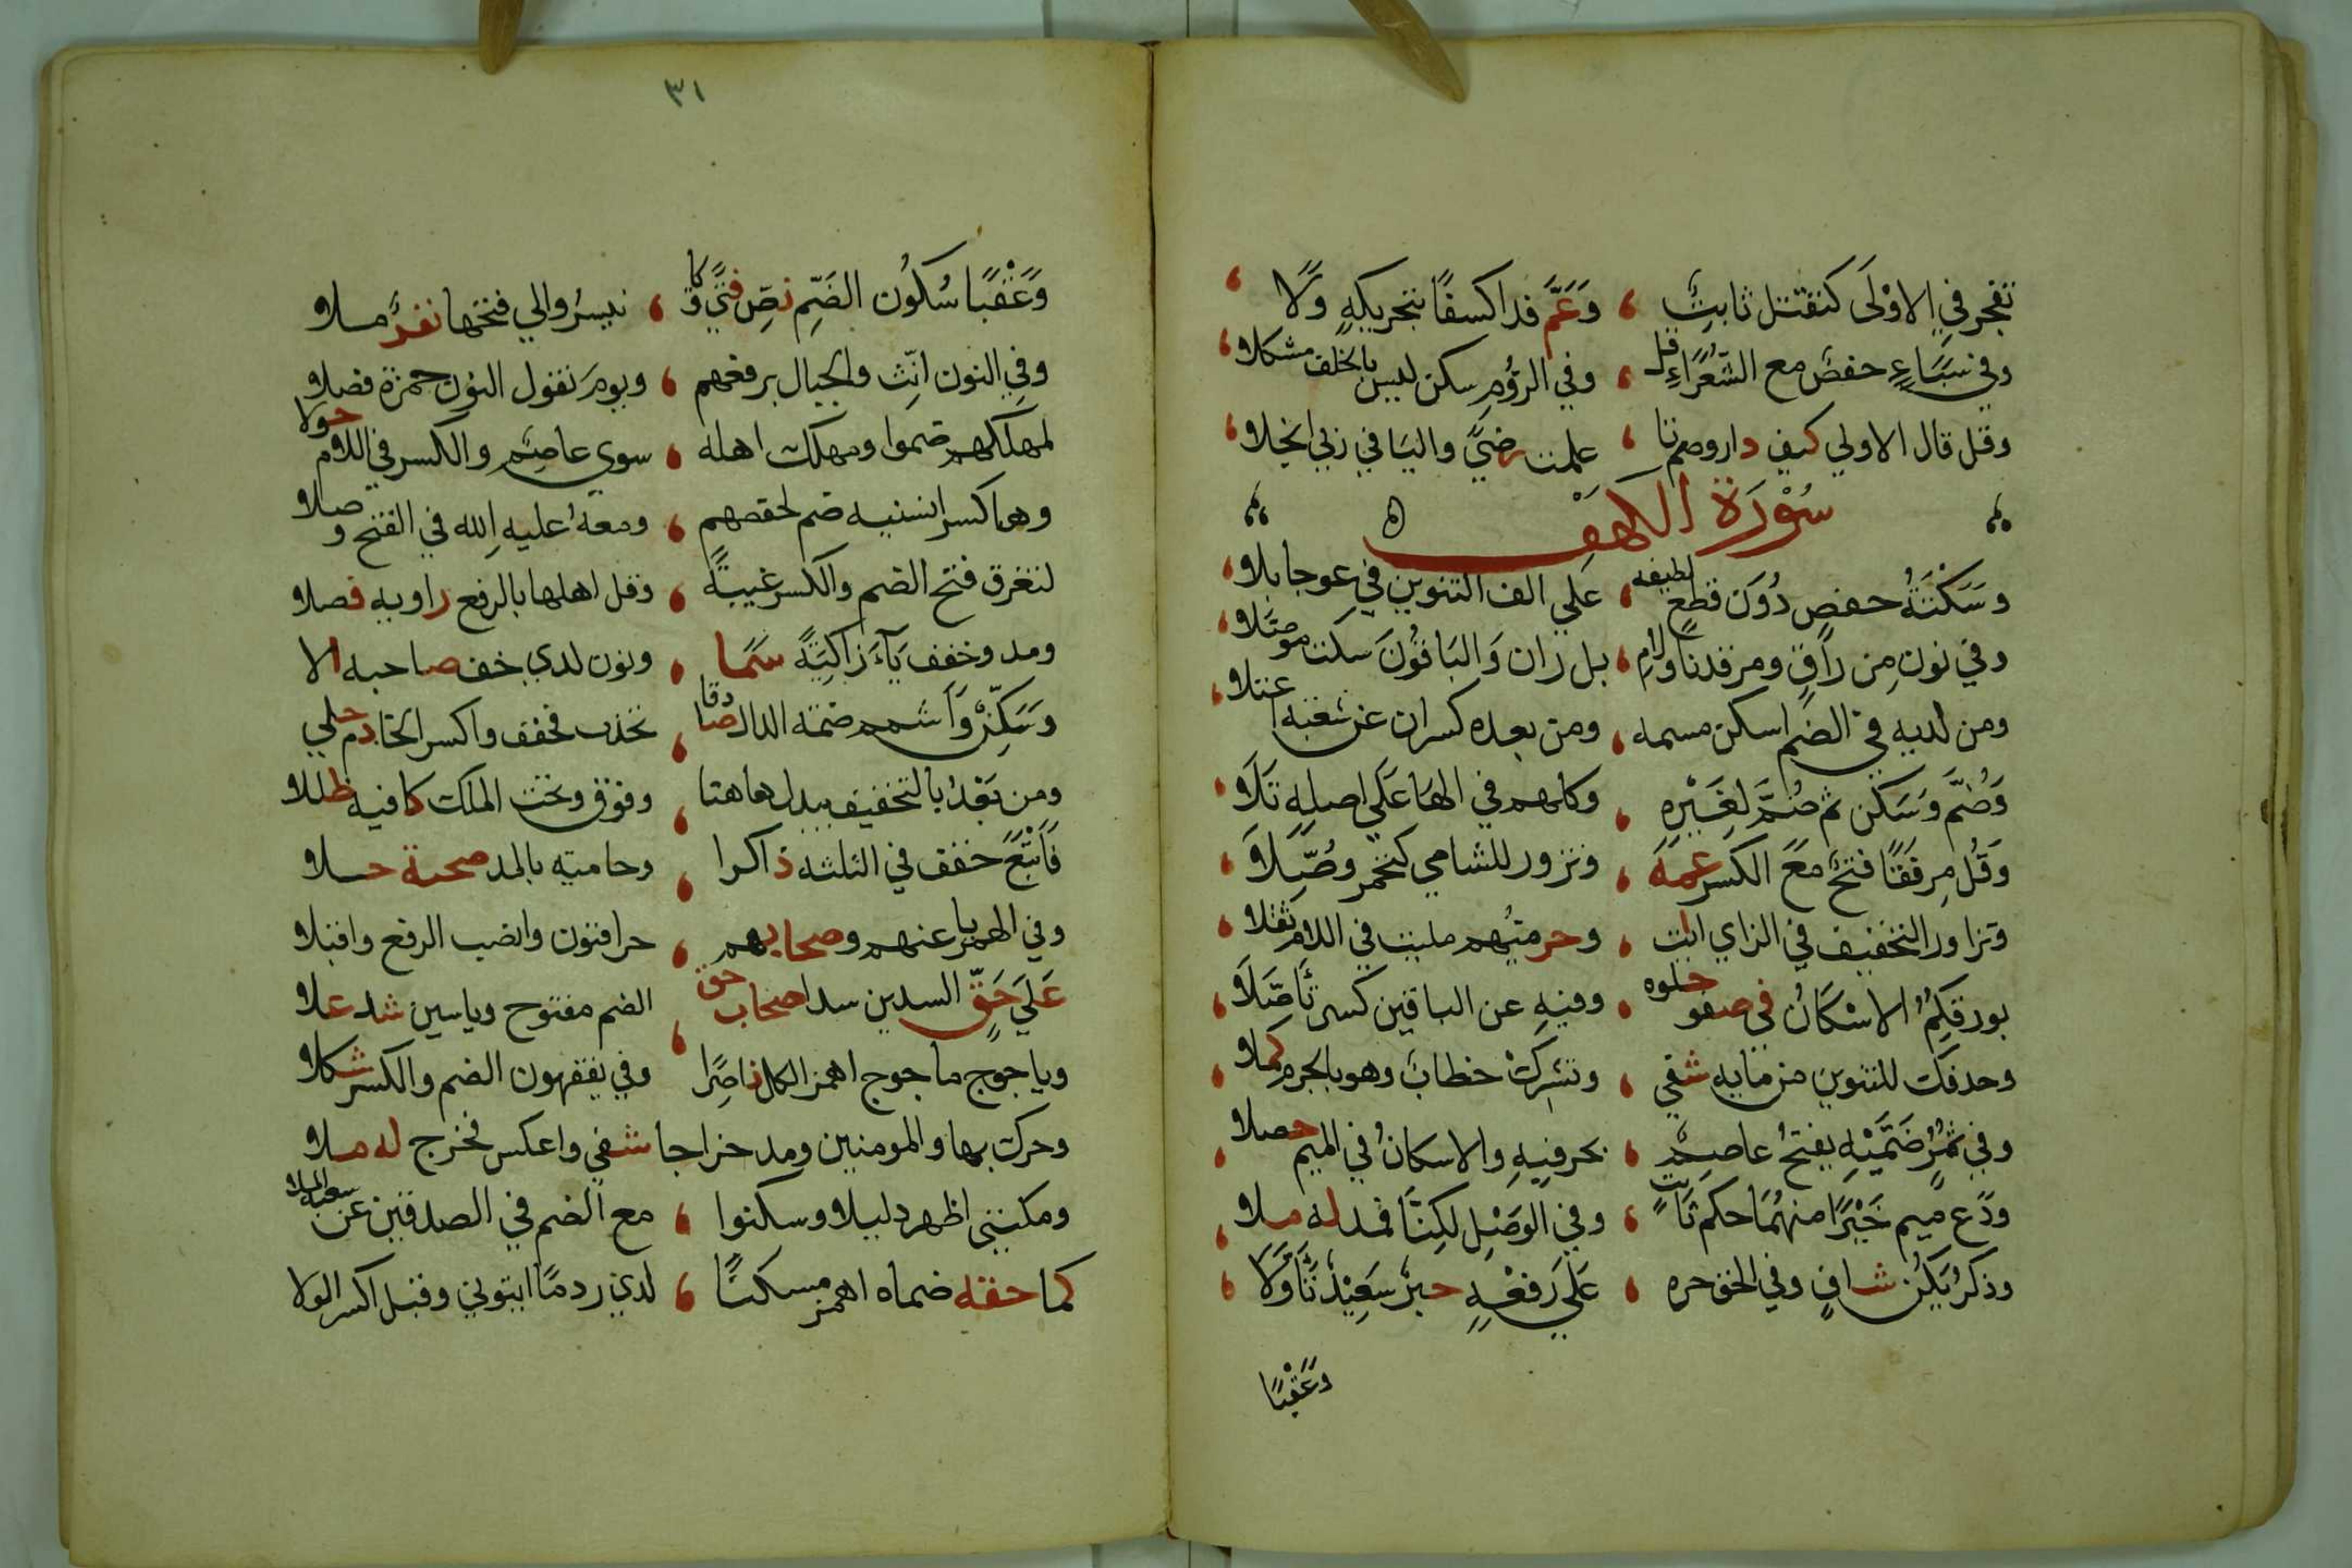 تفجر في الاوْلَى كتقتل ثابتٌ ، وَعَمَّ ندا كسفًا بتحريكهِ وَلَا
وفي سَبَاءٍ حفصٌ مع الشُّعَرَاءِ قل ، وفي الرؤُمِ سكن ليس بالخلف مشكلا
وقل قال الاولي كيف دار وضم تا ، علمت رضيً واليا في ربي انجلا
سُوْرَة الكهف
وسَكْتَةُ حفصٍ دُوَنَ قطعٍ لطيفه ، عَلَي الف التنوين في عوجا بلا
وفي نونِ مِن رَاقٍ ومرقدنا ولامِ ، بل ران وَالبَاقُونَ سكت موصَّلا
ومن لدنه في الضم اسكن مسمه ، ومن بعده كسران عن شعبة اعتلا
وَضُمَّ وَسَكن ثم ضُمَّ لِغَيْرِهِ ، وكلهم في الهَا عَلَي اصلهِ تَلَا
وَقُلْ مِرفَقًا فتحٌ مَعَ الكسر عَمَّهُ ، وتزور للشامي كتحمر وصُّلَا
وتزاور التخفيف في الزاي ثابت ، وحرميهم ملئت في اللام ثقلا
بورقكِمُ الاسْكَانُ في صفو حلوه ، وفيهِ عن الباقين كسر تَأَصَّلَا
وحذفك للتنوين من مايه شفي ، وتشركْ خطابٌ وهو بالجزم كملا
وفي ثُمُرٍ ضَمَّيْهِ يفتحُ عاصِمٌ ، بحرفيهِ والاسكانُ في الميم حصلا
ودَع ميم خَيْرًا منهُمَا حكم ثَابتٍ ، وفي الوصْلِ لكِنَّا فمد له ملا
وذكرْ يَكُن شافٍ وفي الحق جره ، عَلَي رَفعْهِ حبرٌ سَعِيْدٌ تَأَوَّلَا
وَعَقْبًا
٣١
وَعَقْبًا سُكوُن الضَّمِ نصِّ فتًي وَ كا ، نسيرُ والي فتحها نفرٌ ملا
وفي النون انِّث والجبال برفعهم ، ويومَ نقول النوُن حمزة فصلا
لمهلكهم ضموا ومهلك اهله ، سوي عاصِمٍ والكسر في اللام حولا
وها كسر انسنيه ضم لحفصهم ، ومعهُ عليه الله في الفتح وصلا
لتغرق فتح الضم والكسر غيبةً ، وقل اهلها بالرفع راويه فصلا
ومد وخفف يَآءَ زاكِيَةً سَمَا ، ونون لدي خف صاحبه الا
وَسَكِّنْ وَأشمم ضمة الدال صادقا ، تخذت فخفف واكسر الخا دم حلي
ومن بَعْدُ بالتخفيف يبدل هاهنا ، وفوق وتحت الملك كافيه ظللا
فَاَتْبَعَ خفف في الثلثه ذاكرا ، وحاميه بالمد صحبة حلا
وفي الهمز يا عنهم وصحابهم ، جزا فنون وانصب الرفع واقبلا
عَلَي حَقٍّ السدين سدا صحاب حق ، الضم مفتوح وياسين شد علا
وياجوج ماجوج اهمز الكل ناصِرًا وفي يفقهون الضم والكسر شكلا
وحرك بها والمومنين ومد خراجا شفي واعكس فخرج له ملا
ومكنني اظهر دليلا وسكنوا ، مع الضم في الصدفين عن شعبة الملا
كما حقه ضماه اهمز مسكنًا ، لدي ردمًا ايتوني وقبل اكسر الولا